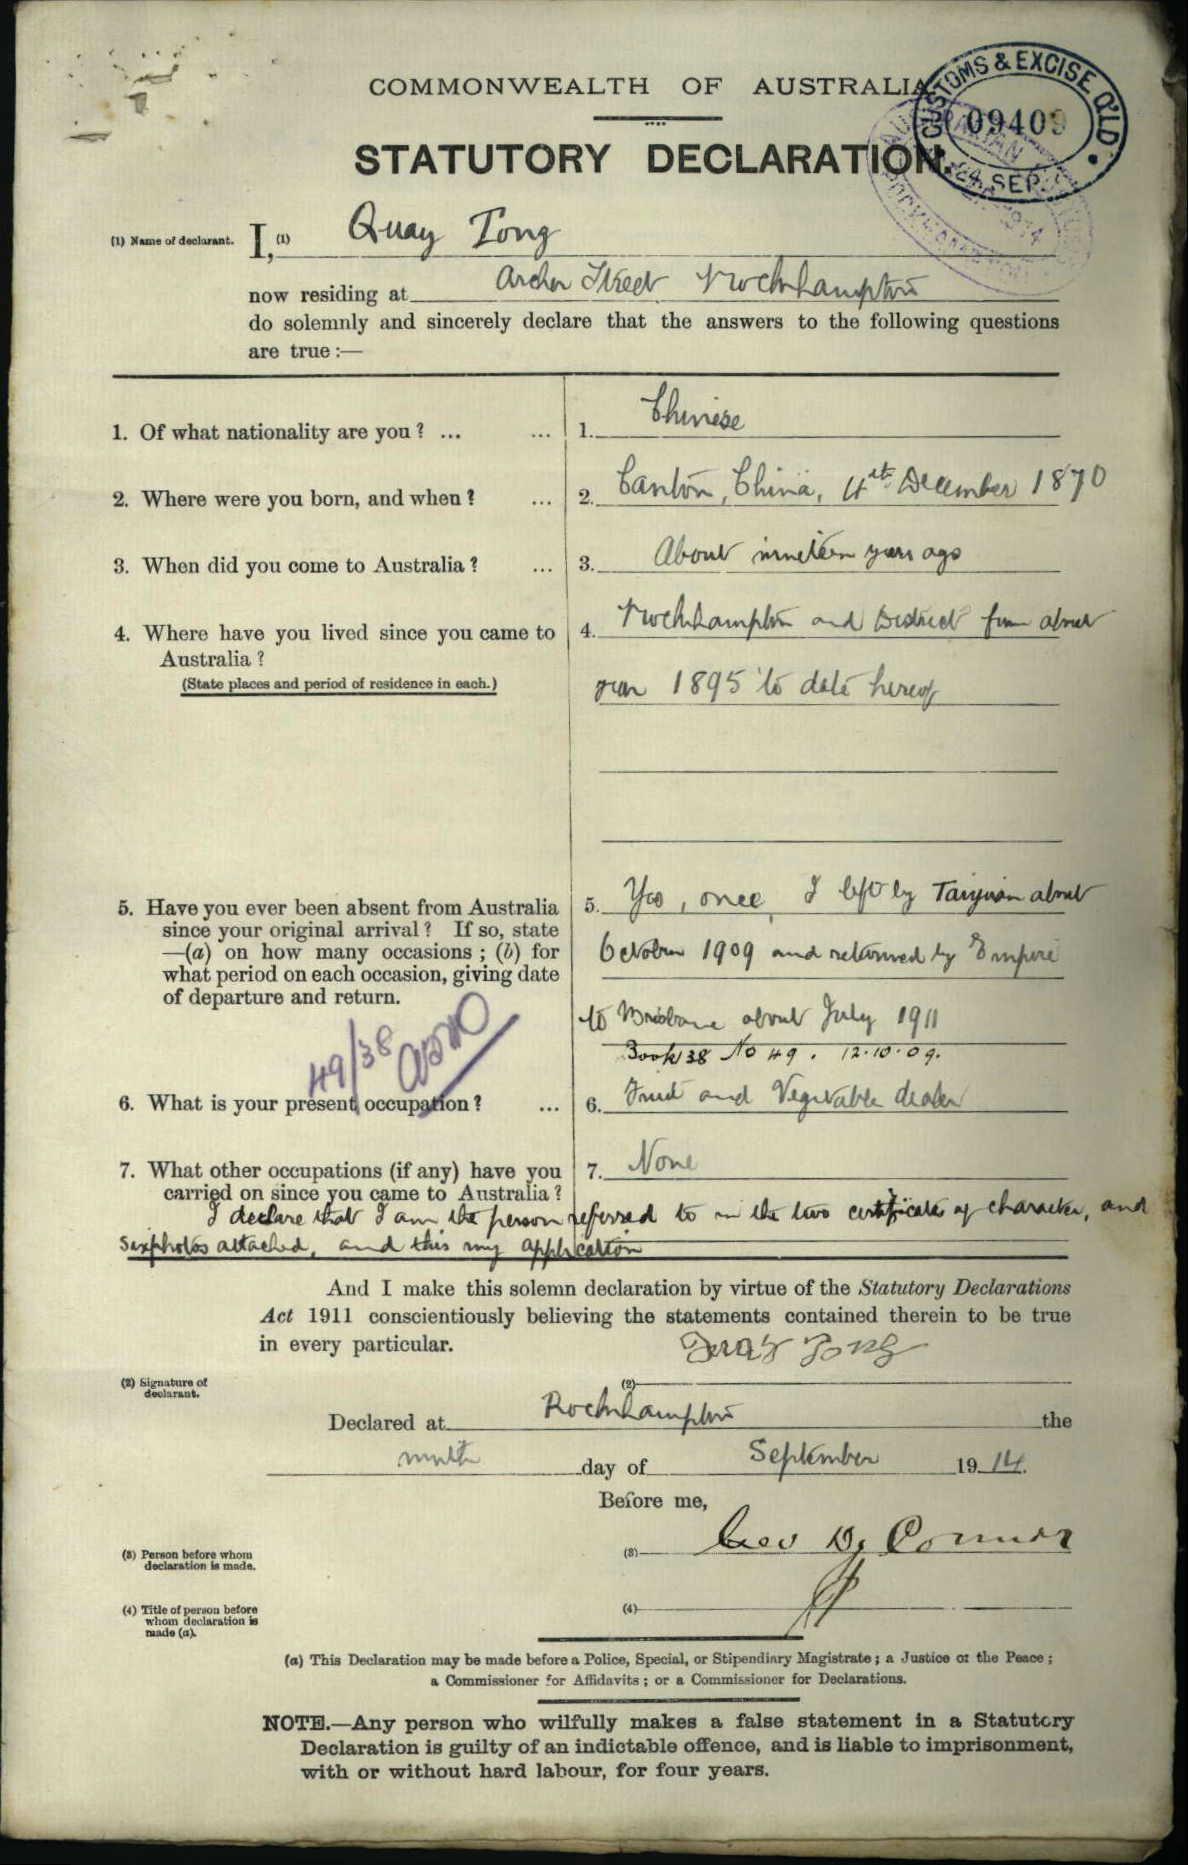 COMMONWEALTH OF AUSTRALIA
CUSTOMS & EXCISE Q'LD
09409
24 SEP
STATUTORY DECLARATION.
(1) Name of declarant. I, (1) Quay Tong
now residing at Archer Street Rockhampton
do solemnly and sincerely declare that the answers to the following questions
are true :—
1. Of what nationality are you ? ... ... 1. Chinese
2. Where were you born, and when ? ... 2. Canton, China, 4th December 1870
3. When did you come to Australia ? ... 3. About nineteen years ago
4. Where have you lived since you came to 4. Rockhampton and District from about
Australia ?
(State places and period of residence in each.) year 1895 to date hereof
5. Have you ever been absent from Australia 5. Yes, once, I left by Taiyuan about
since your original arrival ? If so, state
—(a) on how many occasions ; (b) for October 1909 and returned by Empire
what period on each occasion, giving date
of departure and return.
to Brisbane about July 1911
49/38
Book 38 No 49. 12.10.09.
6. What is your present occupation ? ... 6. Fruit and Vegetable dealer
7. What other occupations (if any) have you 7. None
carried on since you came to Australia ?
I declare that I am the person referred to in the two certificates of character, and
six photos attached, and this my application
And I make this solemn declaration by virtue of the Statutory Declarations
Act 1911 conscientiously believing the statements contained therein to be true
in every particular.
(2) Signature of declarant. (2) Tong
Declared at Rockhampton the
ninth day of September 1914.
Before me,
(3) Person before whom declaration is made. (3) Geo
(4) Title of person before whom declaration is made (a). (4)
(a) This Declaration may be made before a Police, Special, or Stipendiary Magistrate ; a Justice of the Peace ;
a Commissioner for Affidavits ; or a Commissioner for Declarations.
NOTE.—Any person who wilfully makes a false statement in a Statutory
Declaration is guilty of an indictable offence, and is liable to imprisonment,
with or without hard labour, for four years.